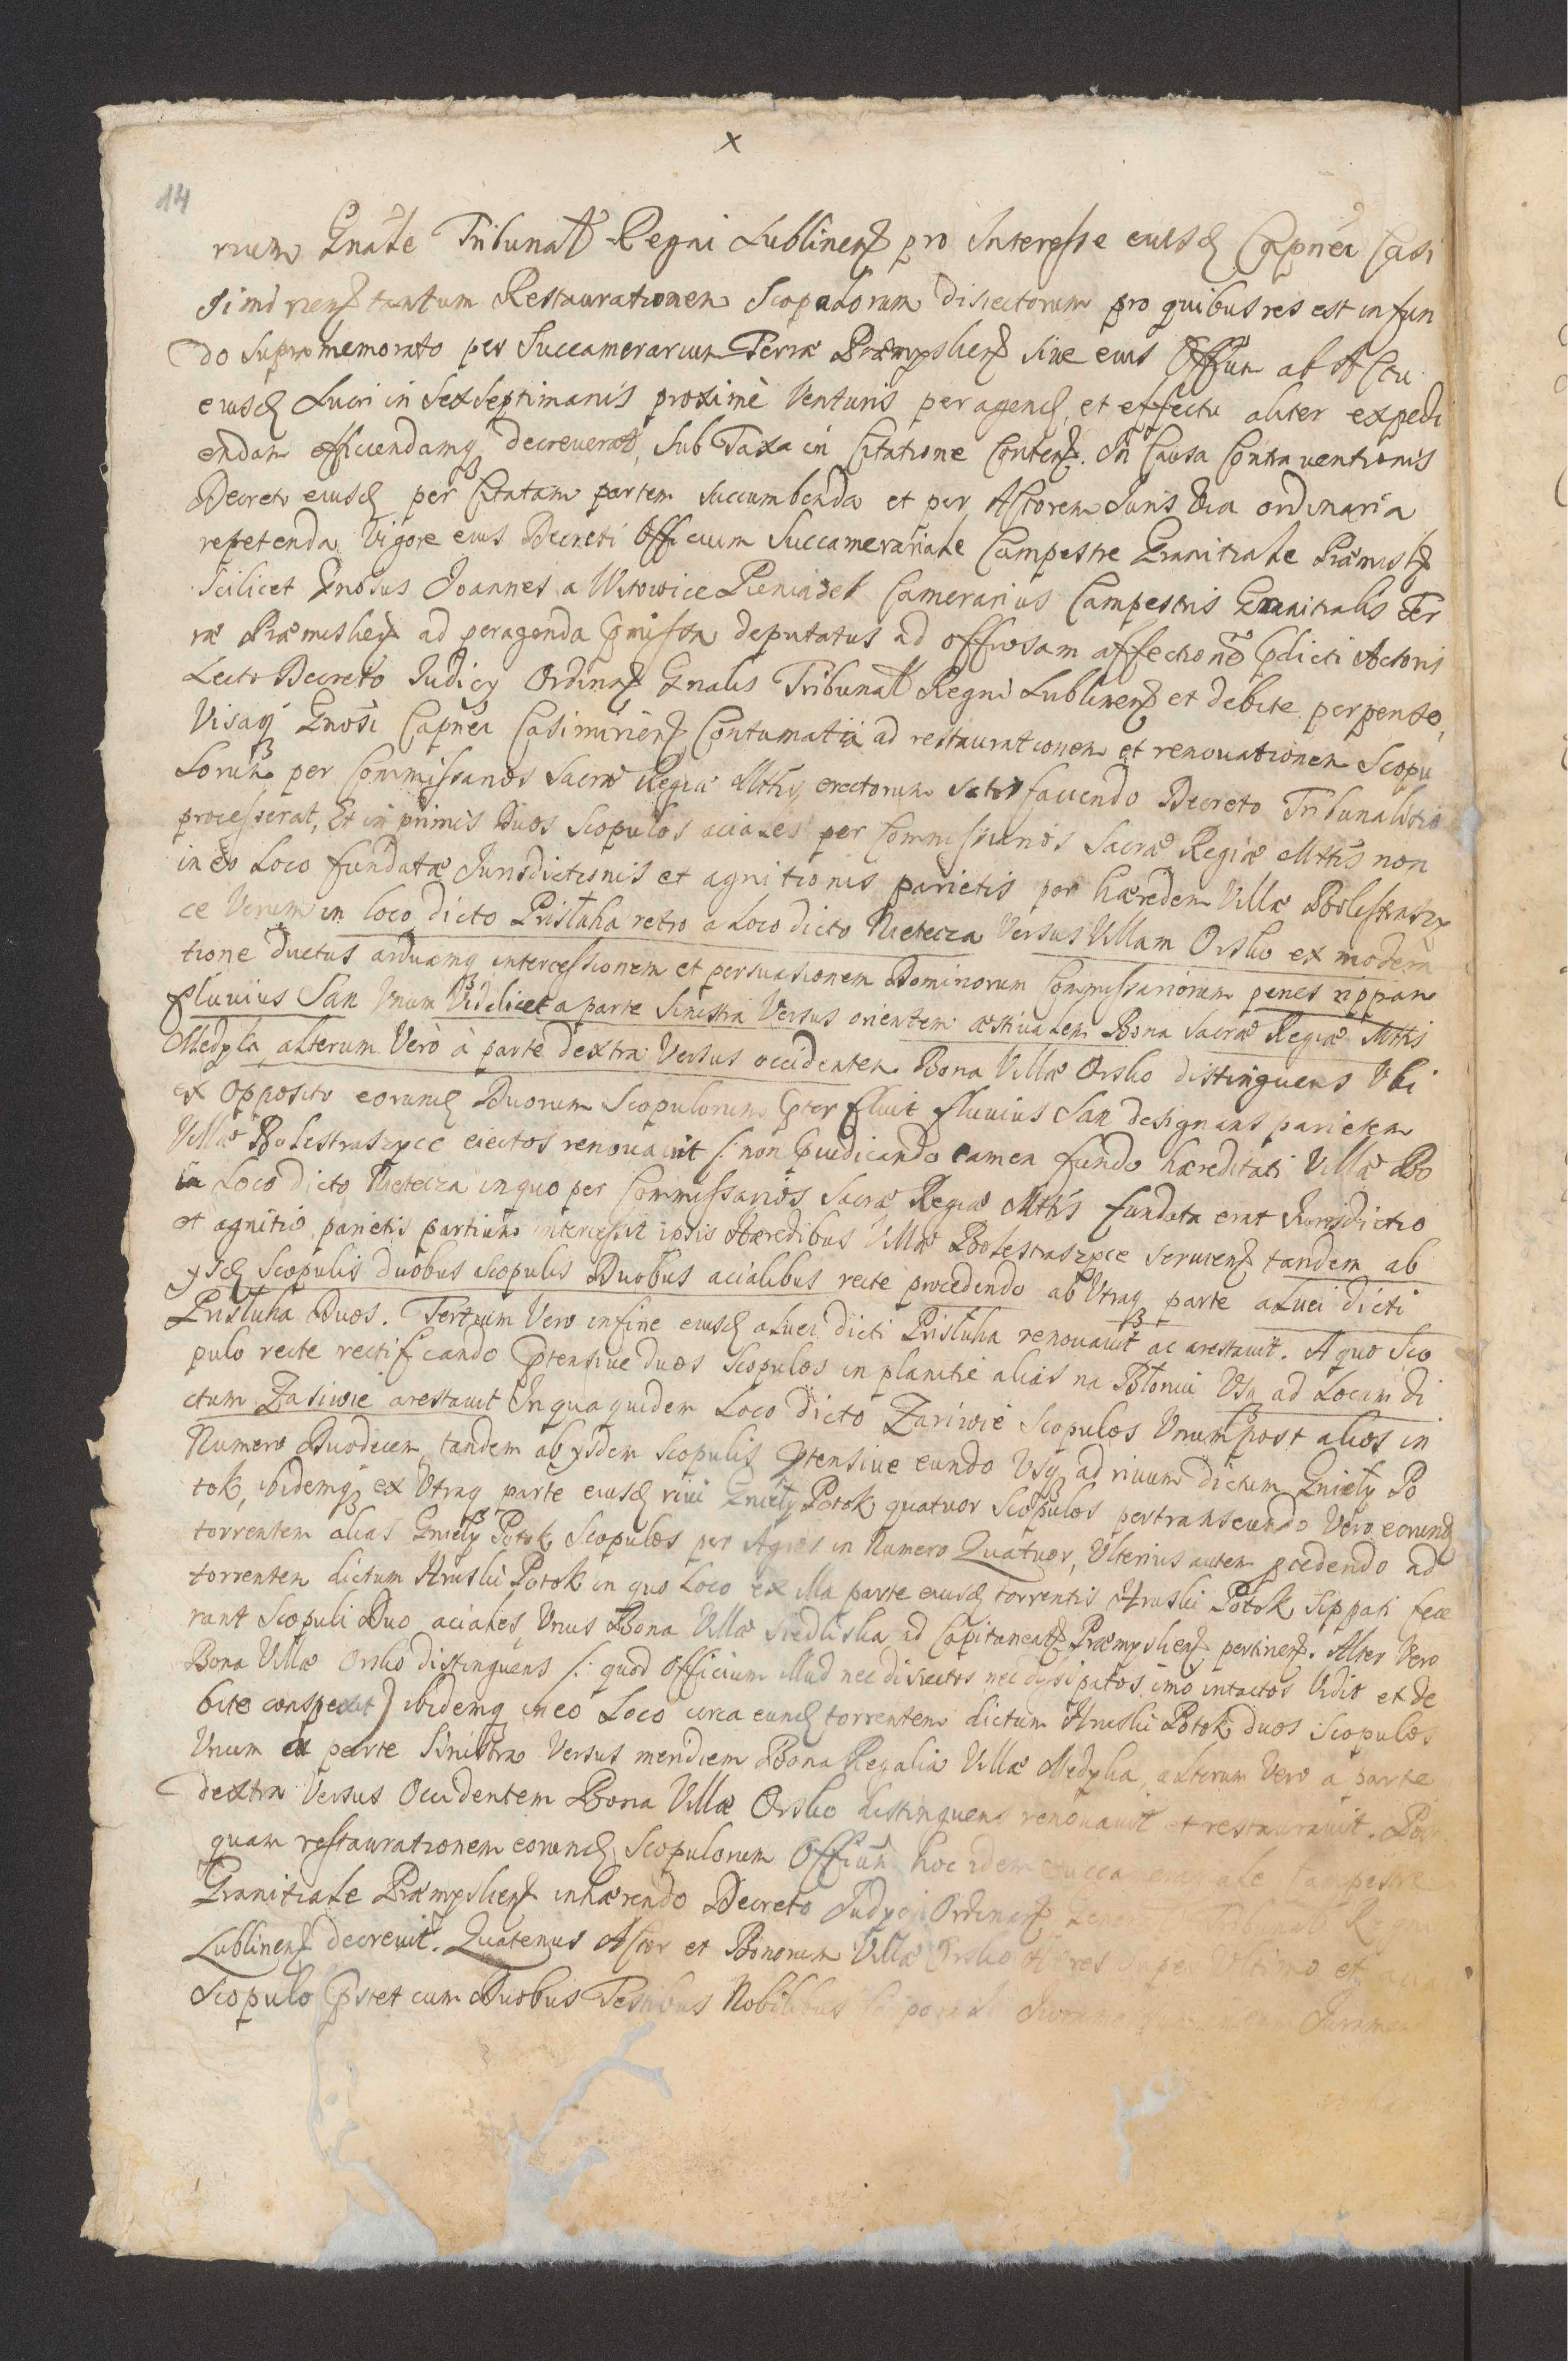 x
14
rium Gnāle Tribunał Regni Lublinenſ pro Interesse eiusd Capnēi Casi
simirienſ tantum Restaurationem Scopulorum disiectorum pro quibus res est in fun
do supra memorato per Succamerarium Terræ Præmysliensſ sive eius Offium ab Actu
eiusd Lucri in Sex Septimanis proximè Venturis peragend, et effectu aliter expedi
endam efficiendamq decreverat, Sub Taxa in Citatione Contenſ. In Causa Contraventionis
Decreto eiusd per Citatam partem succumbenda et per Actorem Juris Via ordinaria
repetenda. Vigore eius Decreti Officium Succamerariale Campestre Granitiale Præmislſ
Scilicet Gnosus Joannes a Witowice Pieniązek Camerarius Campestris Granitialis Ter
ræ Præmislienſ ad peragenda pmissa deputatus ad officiosam affectionē pdicti Actoris
Lecto Decreto Judicy Ordinarſ Gnalis Tribunał Regni Lublinenſ et debite perpenso,
Visaq Gnosi Capnēi Casimirienſ Contumatia ad restaurationem et renovationem Scopu
lorum per Commissarios Sacræ Regiæ Mttis erectorum satisfaciendo Decreto Tribunalitio
processerat, Et in primis Duos Scopulos aciales per Commissarios Sacræ Regiæ Mttis non
in eo Loco fundatæ Jurisdictionis et agnitionis parietis per hæredem Villæ Bolestraszy
ce Verum in loco dicto Pristuha retro a Loco dicto Nietecza Versus Villam Orsko ex modern
tione ductus arduamq intercessionem et persuasionem Dominorum Commissariorum penes rippam
fluvius San Unum Videlicet a parte Sinistra Versus orientem æstivalem Bona Sacræ Regiæ Mttis
Medyka, alterum Verò à parte dextra Versus occidentem Bona Villæ Orsko distinguens Ubi
ex Opposito eorund Duorum Scopulorum pter fluit fluvius San designans parietem
Villæ Bolestraszyce eiectos renovavit /: non pudicando tamen fundo hæreditati Villæ Bo
in Loco dicto Nietecza in quo per Commissarios Sacræ Regiæ Mttis fundata erat Jurisdictio
et agnitio parietis partium intercessit ipsis Hæredibus Villæ Bolestraszyce servienſ tandem ab
ysd Scopulis duobus Scopulis Duobus acialibus recte procedendo ab Utraq parte alvei dicti
Pristuha Duos. Tertium Vero in fine eiusd alvei dicti Pristuha renovavit ac arestavit. A quo Sco
pulo recte rectificando ptensive duos Scopulos in planitie alias na Błoniu Usq ad Locum di
ctum Zariwie arestavit In qua quidem Loco dicto Zariwie Scopulos Unum post alios in
Numero Duodecem, tandem ab ysdem Scopulis ptensive eundo Usq ad rivum dictum Gniely Po
tok, ibidemq ex Utraq parte eiusd rivi Gniely Potok quatuor Scopulos pertranseundo Vero eorund
torrentem alias Gniely Potok Scopulos per Agros in Numero Quatuor, Ulterius autem pcedendo ad
torrentem dictum Hruski Potok in quo Loco ex illa parte eiusd torrentis Hruski Potok Sippati fece
rant Scopuli Duo aciales, Unus Bona Villæ Siedliska ad Capitaneatſ Præmyslienſ pertinenſ. Alter Vero
Bona Villæ Orsko distinguens /: quod officium illud nec disiectos nec dyssipatos imo intactos Vidit et de
bite conspexit) ibidemq in eo Loco circa eund torrentem dictum Hruski Potok duos Scopulos
Unum ex parte Sinistra Versus meridiem Bona Regalia Villæ Medyka, alterum Vero a parte
dextra Versus Occidentem Bona Villæ Orsko distinguens renovavit et restauravit. Post
quam restaurationem eorund Scopulorum Offium hoc idem Succamerariale Campestre
Granitiale Præmyslienſ inhærendo Decreto Judycii Ordinarſ Gene Tribunał Regni
Lublinenſ decrevit. Quatenus Actor et Bonorum Villæ Orsko Hæres super Ultimo et acia
Scopulo pstet cum Duobus Testibus Nobilibus Juramen